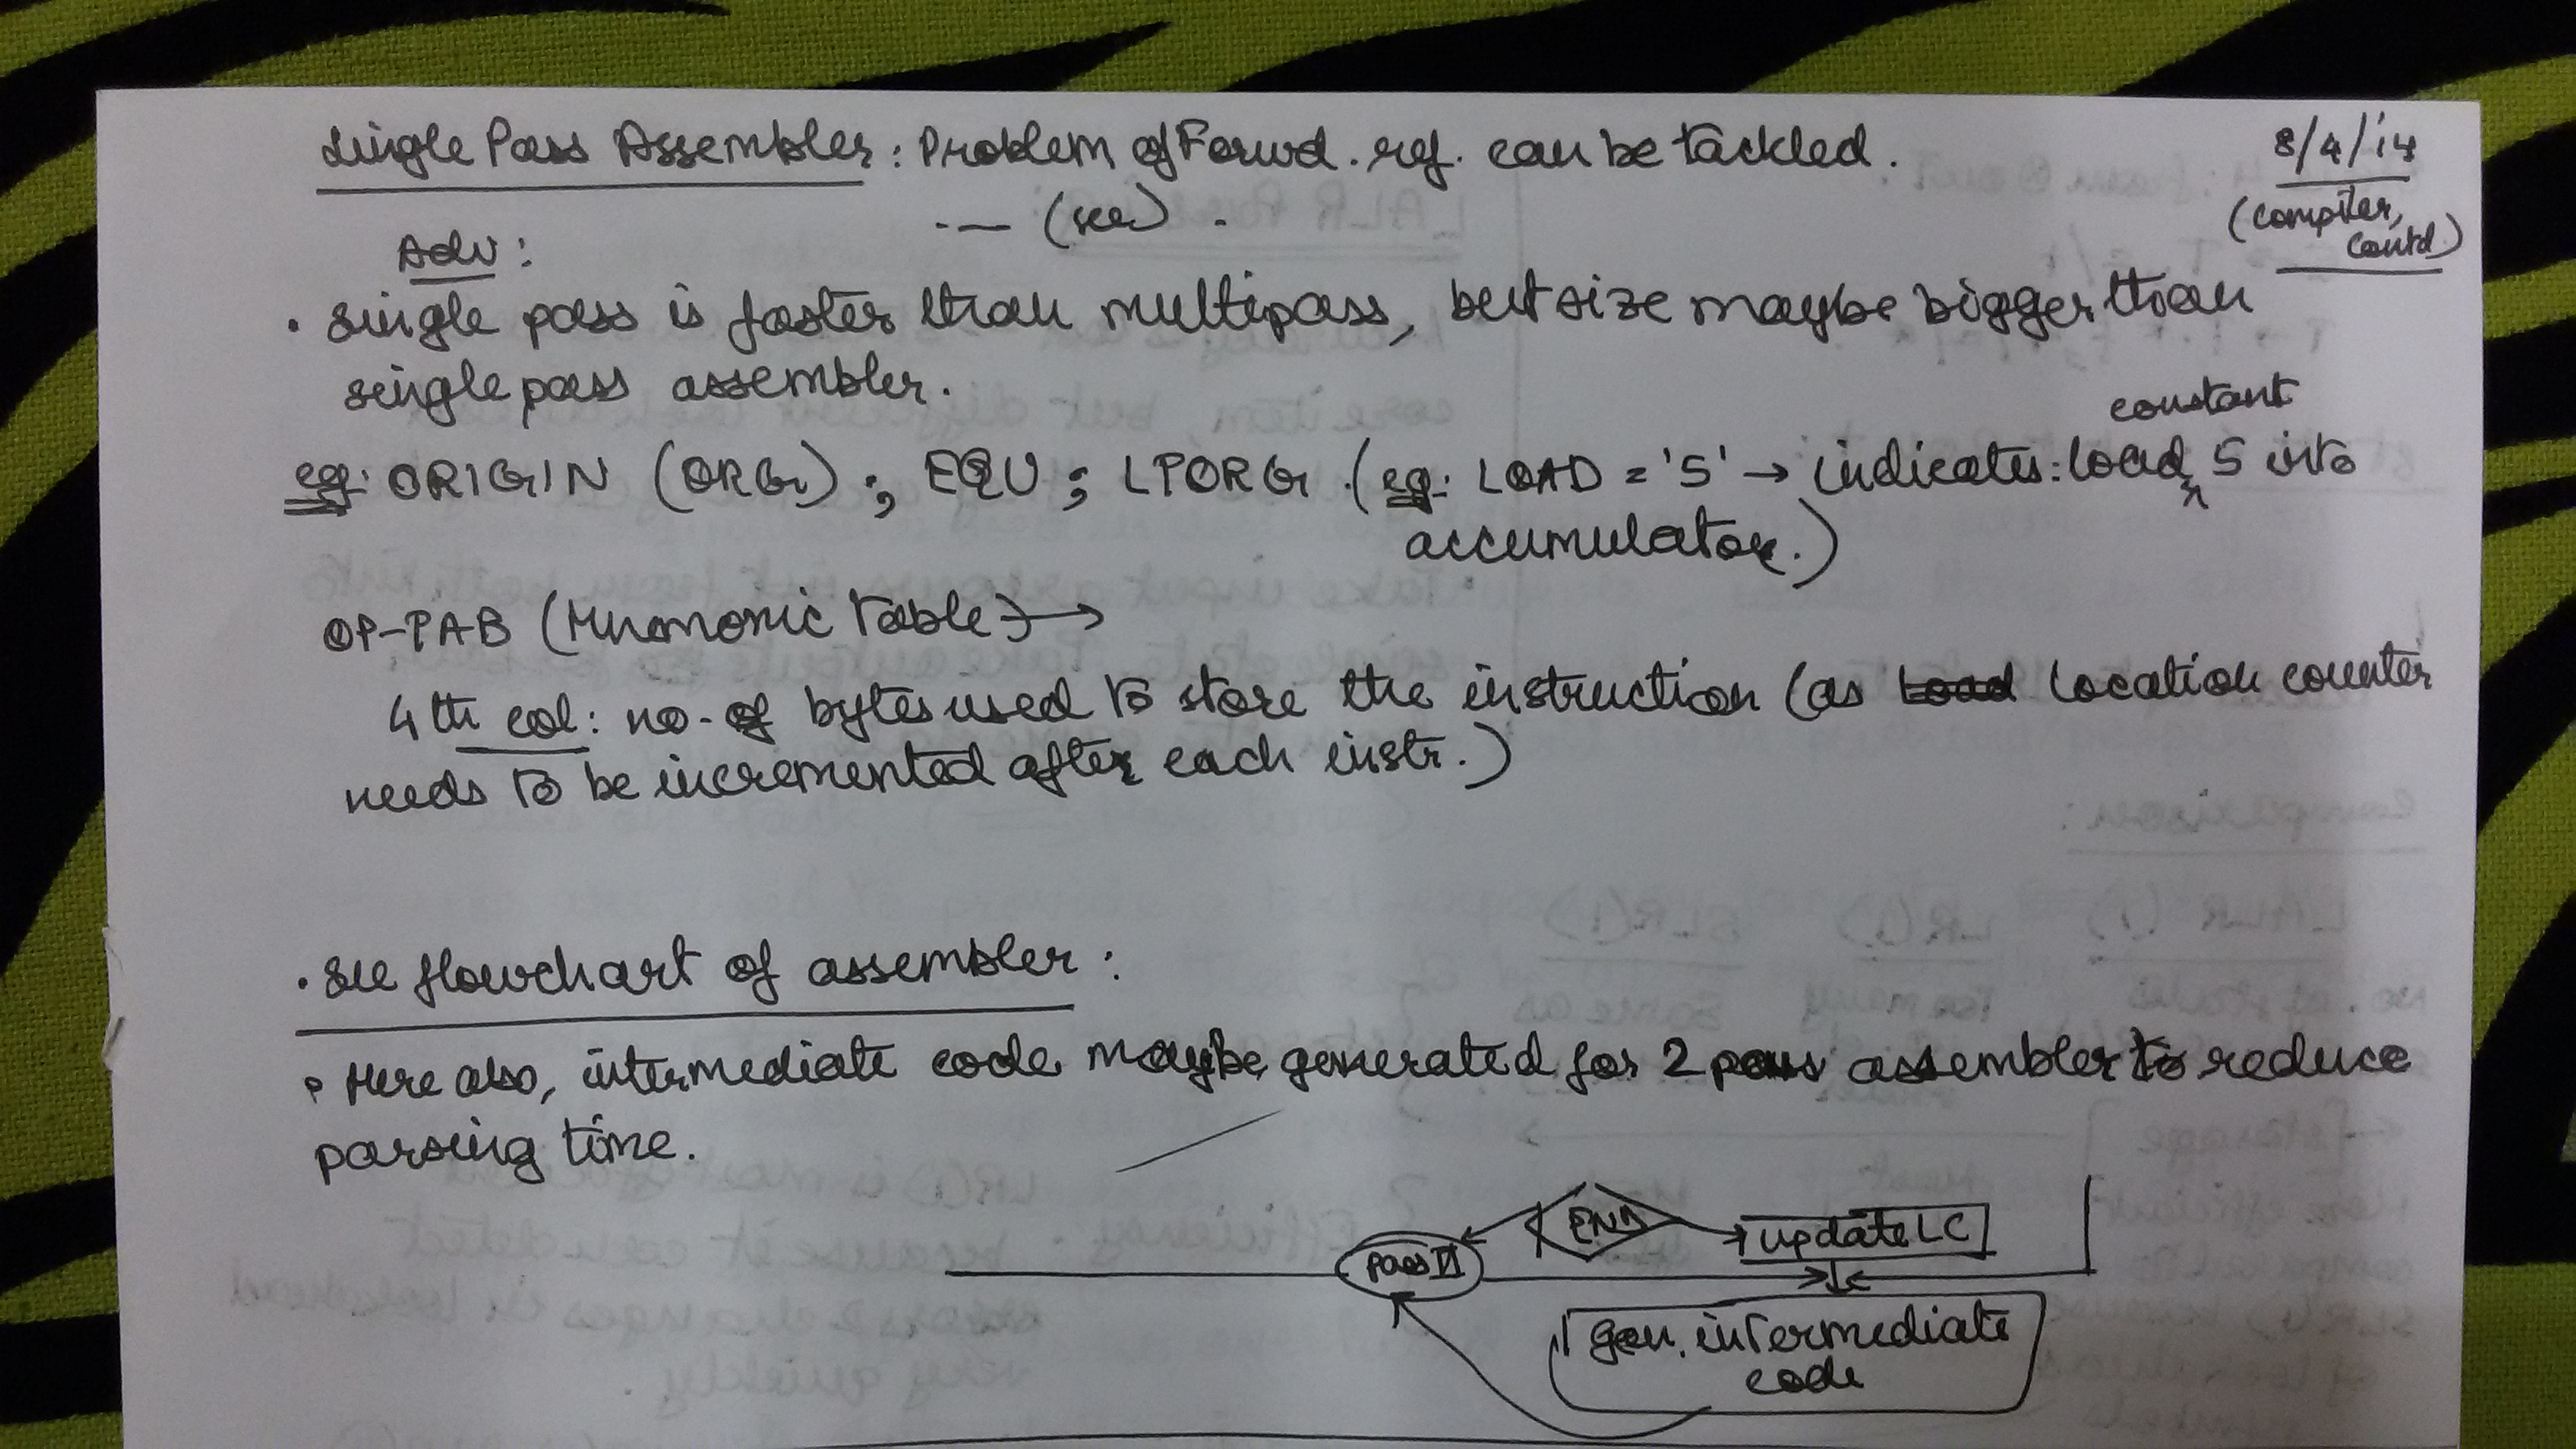 Single Pass Assembler: Problem of Forwd. ref. can be tackled.
8/4/14
(compiler,
contd)
-- (see) .
Adv:
• single pass is faster than multipass, but size maybe bigger than
single pass assembler.
constant
eg: ORIGIN (ORG) ; EQU ; LTORG . (eg: LOAD = '5' → indicates: load 5 into
accumulator.)
OP-TAB (Mnmonic Table) →
4th col: no. of bytes used to store the instruction (as Load location counter
needs to be incremented after each instr.)
• See flowchart of assembler :
• Here also, intermediate code maybe generated for 2 pass assembler to reduce
parsing time.
END
update LC
Pass II
gen. intermediate
code